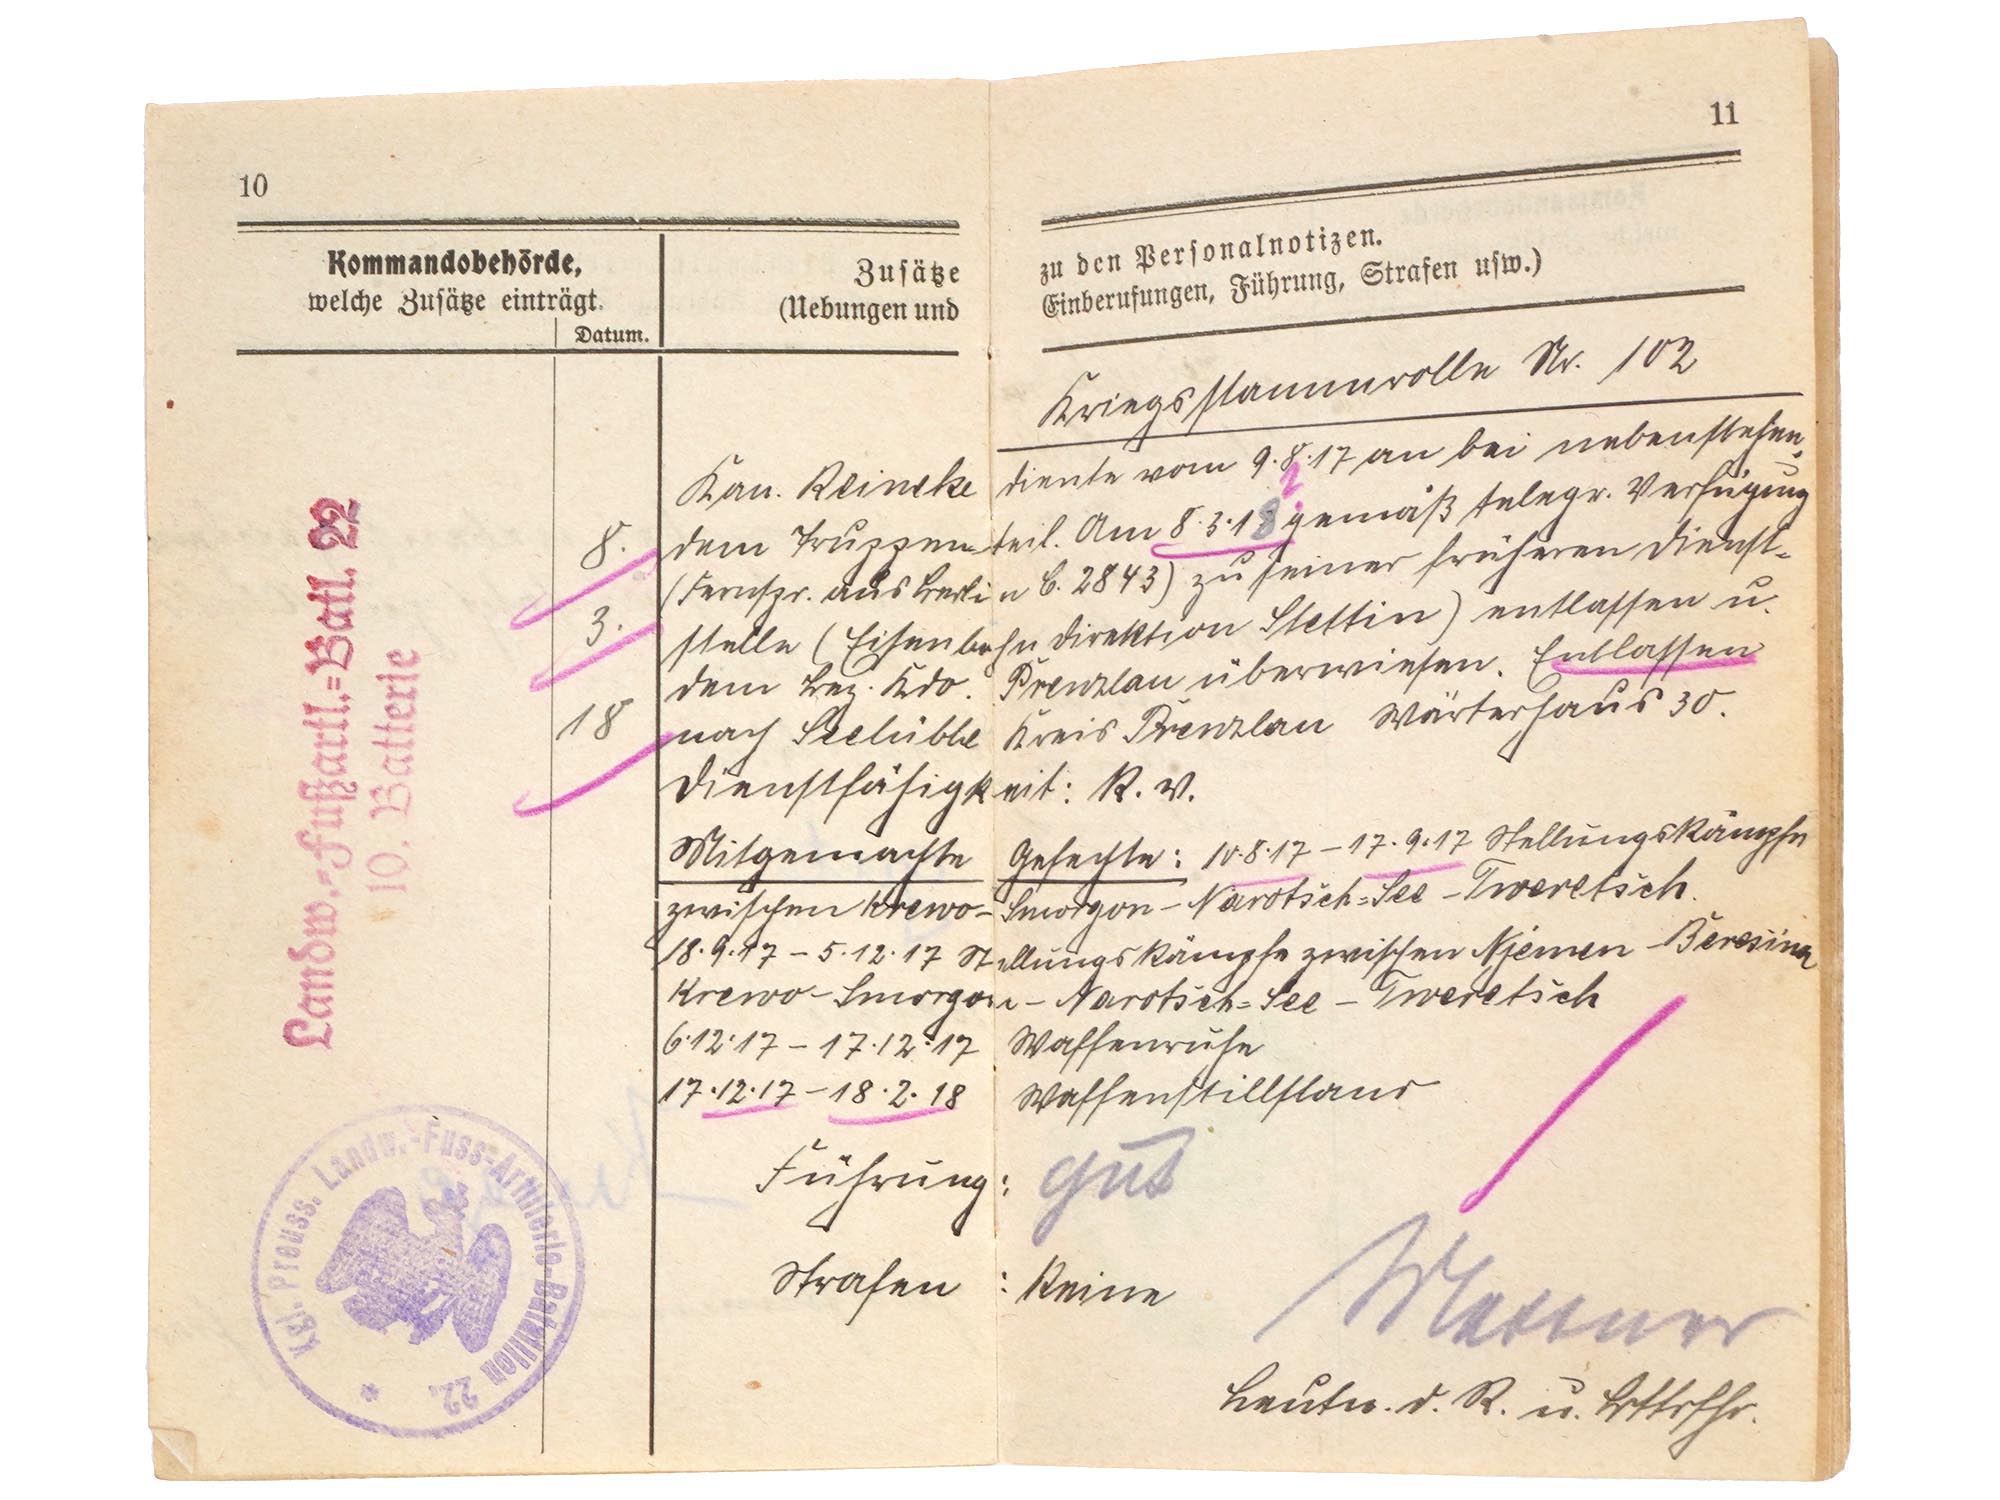 10
11
Kommandobehörde,
welche Zusätze einträgt.
Datum.
Zusätze zu den Personalnotizen.
(Uebungen und Einberufungen, Führung, Strafen usw.)
Landw.=Fußartl.=Batl. 22
10. Batterie
8.
3.
18
Kriegsstammrolle Nr. 102
Kan. Reineke diente vom 9.8.17 an bei nebenstehen-
dem Truppenteil. Am 8.3.18 gemäß telegr. Verfügung
(Fernspr. aus Berlin C. 2843) zu seiner früheren Dienst-
stelle (Eisenbahndirektion Stettin) entlassen u.
dem Bez. Kdo. Prenzlau überwiesen. Entlassen
nach Seelübbe Kreis Prenzlau Wärterhaus 30.
Dienstfähigkeit: K. v.
Mitgemachte Gefechte: 10.8.17 – 17.9.17 Stellungskämpfe
zwischen Krewo – Smorgon – Narotsch=See – Tweretsch.
18.9.17 – 5.12.17 Stellungskämpfe zwischen Njemen – Beresina
Krewo – Smorgon – Narotsch=See – Tweretsch
6.12.17 – 17.12.17 Waffenruhe
17.12.17 – 18.2.18 Waffenstillstand
Führung: gut
Strafen: Keine
Leutn. d. R. u. Bttrfhr.
Kgl. Preuss. Landw.-Fuss-Artillerie-Bataillon 22.